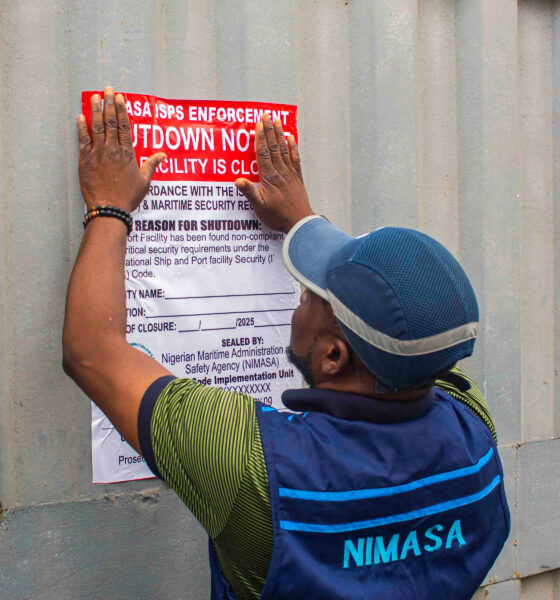 ASA ISPS ENFORCEMENT
UTDOWN NOT
FACILITY IS CLO
RDANCE WITH THE IS
& MARITIME SECURITY RE
REASON FOR SHUTDOWN:
ort Facility has been found non-complian
ritical security requirements under the
ational Ship and Port facility Security (I
) Code.
ITY NAME:
TION:
OF CLOSURE: / /2025
SEALED BY:
Nigerian Maritime Administration
Safety Agency (NIMASA)
Code Implementation Unit
XXXXXXXXX
ov.ng
Prosec
NIMASA